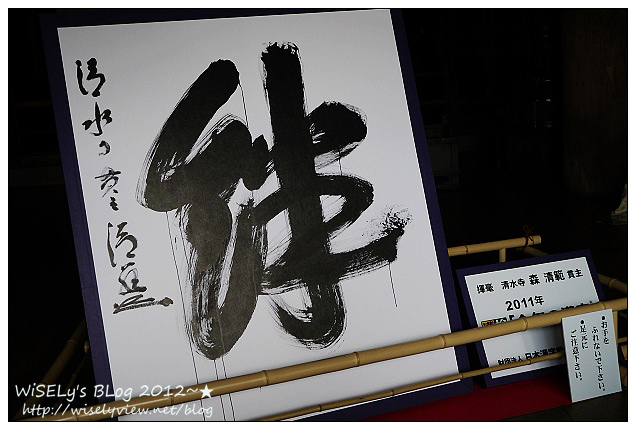 絆
清水 貫主 清範
揮毫 清水寺 森 清範 貫主
2011年
「今年の漢字」
財団法人 日本漢
●お手を
ふれないで下さい。
●足元に
ご注意下さい。
WiSELy's BLog 2012~★
http://wiselyview.net/blog